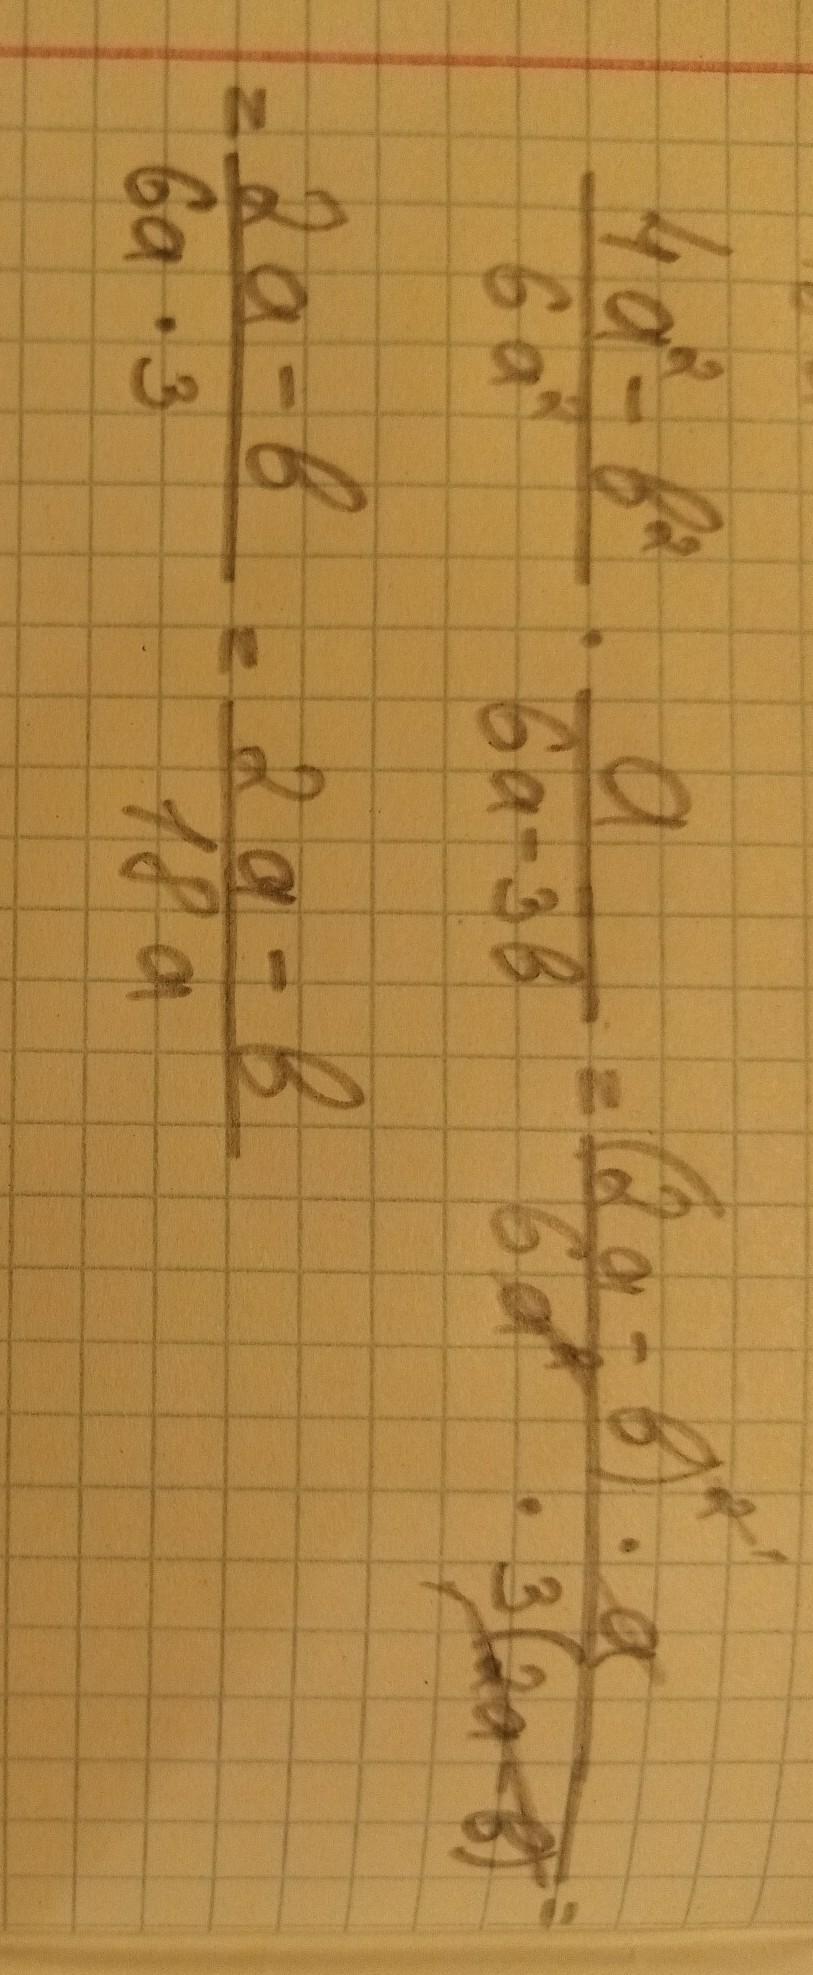 4a²-в²/6a² · a/6a-3в = (2a-в)² ¹ · a/6a² · 3(2a-в) =
= 2a-в/6a·3 = 2a-в/18a